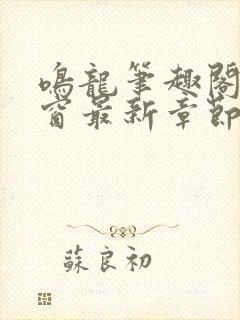 鳴龍筆趣閣
窗最新章節
蘇良初